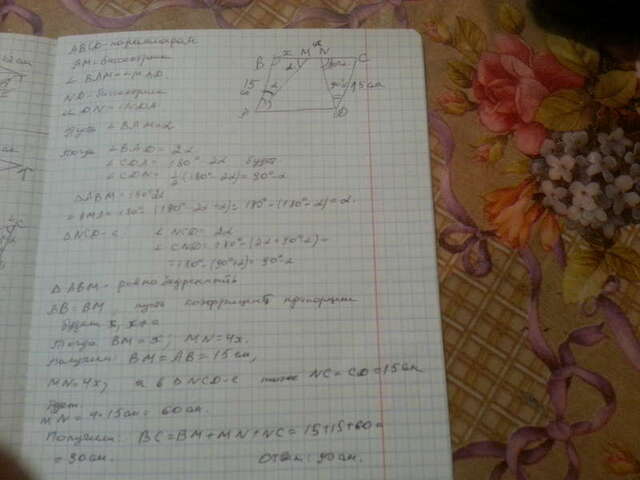 ABCD - параллелограм
AM - биссектриса
∠BAM = ∠MAD
ND - биссектриса
∠CDN = ∠NDA
Пусть ∠BAM = α
Тогда ∠BAD = 2α
∠CDA = 180° - 2α будет
∠CDN = 1/2 (180° - 2α) = 90° - α
ΔABM = 180° 2α
∠BMA = 180° - (180° - 2α + α) = 180° - (180° - α) = α.
ΔNCD-с ∠NCD = 2α
∠CND = 180° - (2α + 90° - α) =
= 180° - (90° + α) = 90° - α
ΔABM - равнобедренность
AB = BM, пусть коэффициент пропорции
будет x,
Тогда BM = x; MN = 4x.
Получаем: BM = AB = 15 см,
MN = 4x, а в ΔNCD-с также NC = CD = 15 см
будет
MN = 4 · 15 см = 60 см.
Получаем: BC = BM + MN + NC = 15 + 15 + 60 =
= 90 см. Ответ: 90 см.
B x M N C
15 см
α
15 см
A D